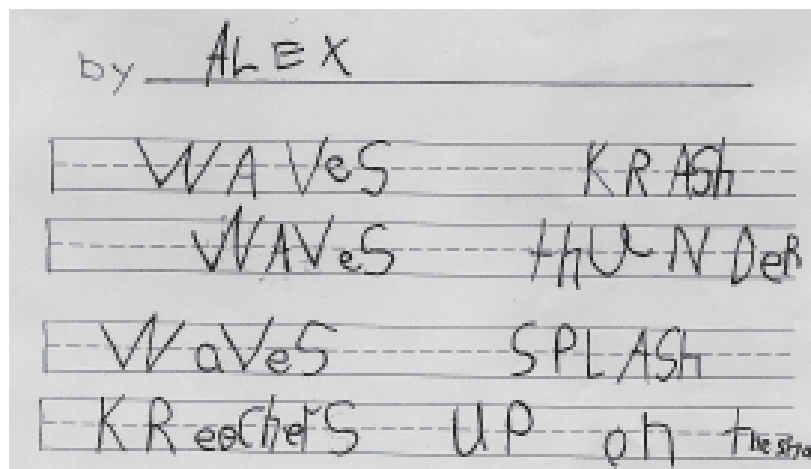 by ALEX
WAVeS KRASh
WAVeS thUNDeR
WaVeS SPLASh
KReeCherS UP on the